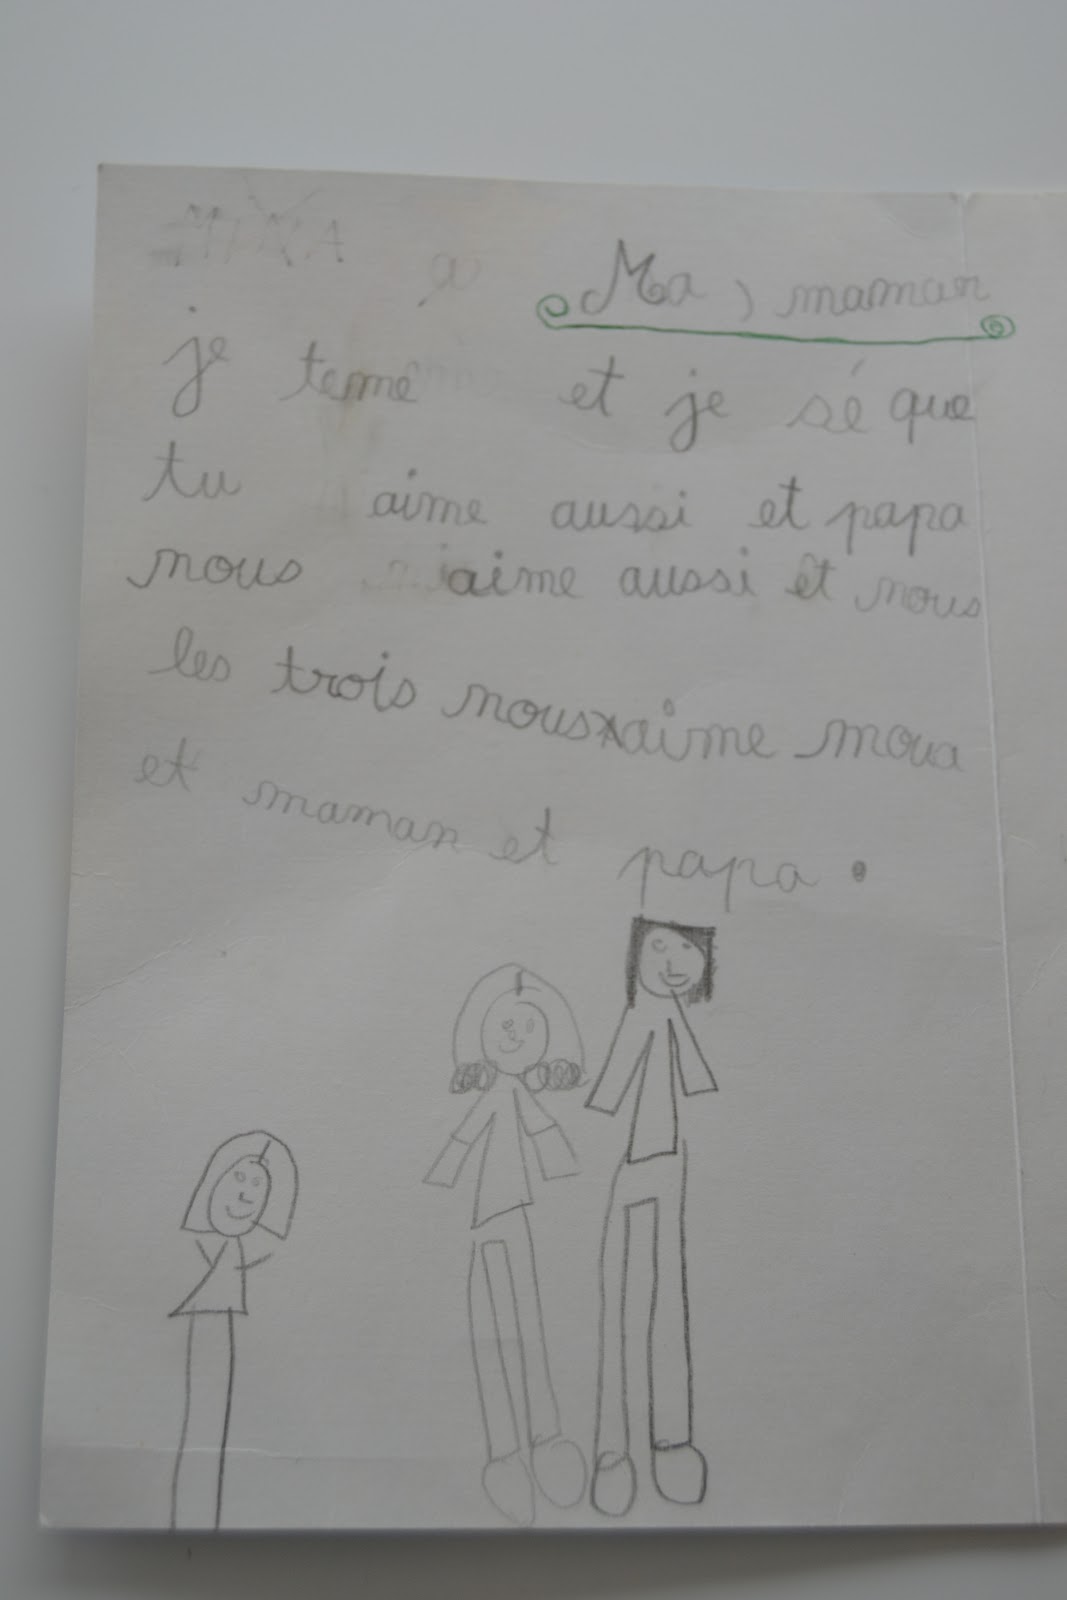 Ma maman
je teme et je sé que
tu aime aussi et papa
nous aime aussi et nous
les trois nous aime moua
et maman et papa.